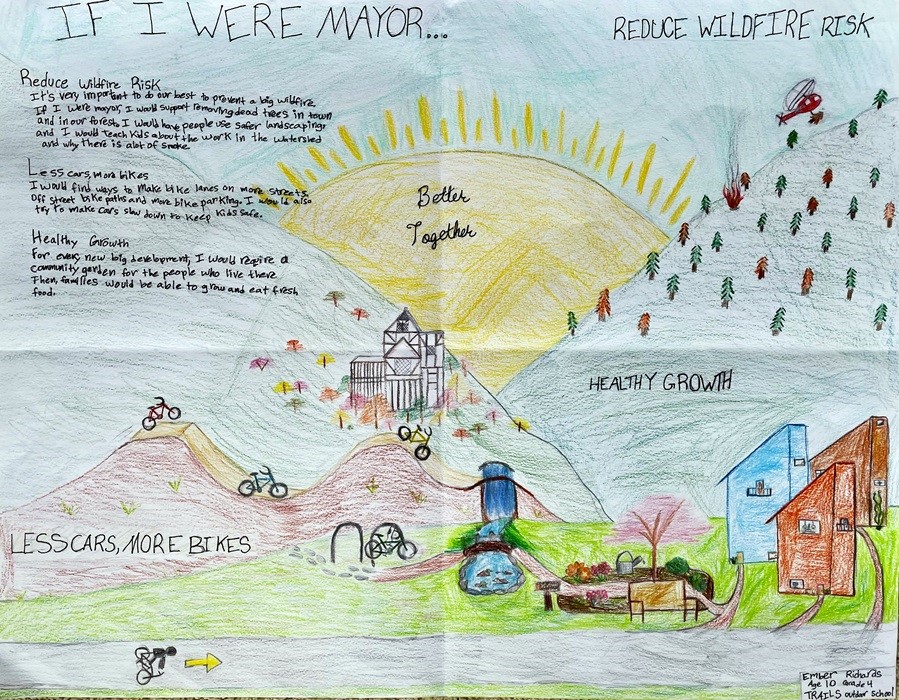 IF I WERE MAYOR...
REDUCE WILDFIRE RISK
Reduce Wildfire Risk
It's very important to do our best to prevent a big wildfire.
If I were mayor, I would support removing dead trees in town
and in our forest. I would have people use safer landscaping,
and I would teach kids about the work in the watershed
and why there is alot of smoke.
Less cars, more bikes
I would find ways to make bike lanes on more streets,
Off street bike paths and more bike parking. I would also
try to make cars slow down to keep kids safe.
Healthy Growth
For every new big development, I would require a
community garden for the people who live there
Then, families would be able to grow and eat fresh
food.
Better
Together
HEALTHY GROWTH
LESS CARS, MORE BIKES
Ember Richards
Age 10 Grade 4
TRAILS outdoor School